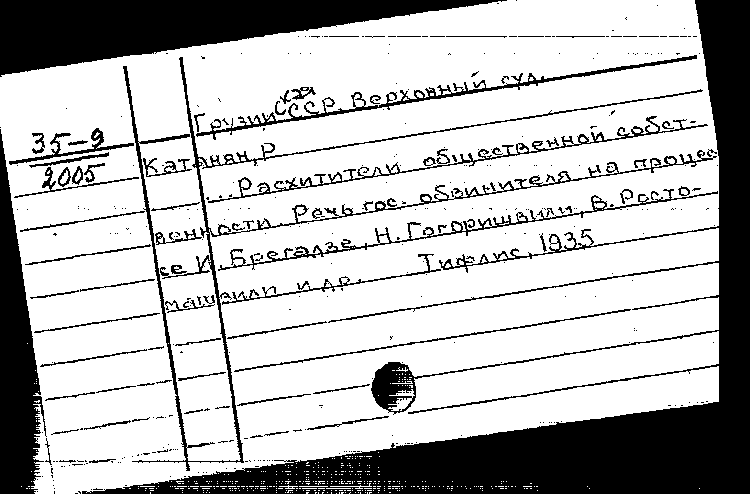 Грузин ССР. Верховный суд.
35-9
2005
Катанян, Р
...Расхитители общественной собст-
венности. Речь гос. обвинителя на процес
се И. Брегадзе, Н. Гогоришвили, В. Росто-
машвили и др. Тифлис, 1935